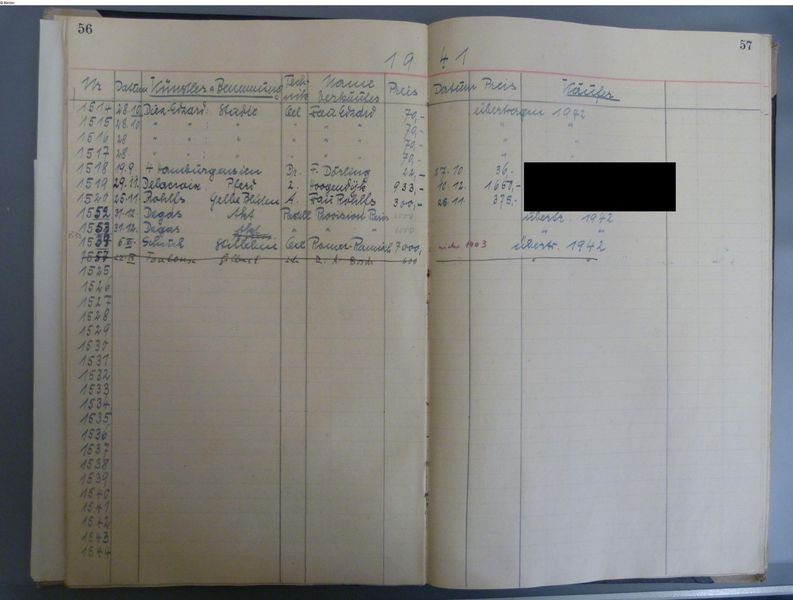 56
57
19 41
Nr Datum Künstler u Benennung Technik Name Verkäufer Preis Datum Preis Käufer
1514 28.10 Studie Oel Frau 70,- übertragen 1942
1515 28.10 " " " " 70,- " "
1516 28 " " " " 70,- " "
1517 28 " " " " 70,- " "
1518 19.9 4 Hamburgensien Dr. F. Dörling 22,- 27.10 36,-
1519 29.11. Delacroix Pferd Z. Hoogendijk 933,- 10.12. 1650,-
1520 25.11 Rohlfs Gelbe Blüten A. Frau Rohlfs 300,- 28.11 375,-
1552 31.12. Degas Akt Pastell Provision Paris übertr. 1942
1553 31.12. Degas " " " "
Schuch Stilleben Oel 7000,- 1903 übertr. 1942
1557 600 "
1525
1526
1527
1528
1529
1530
1531
1532
1533
1534
1535
1536
1537
1538
1539
1540
1541
1542
1543
1544